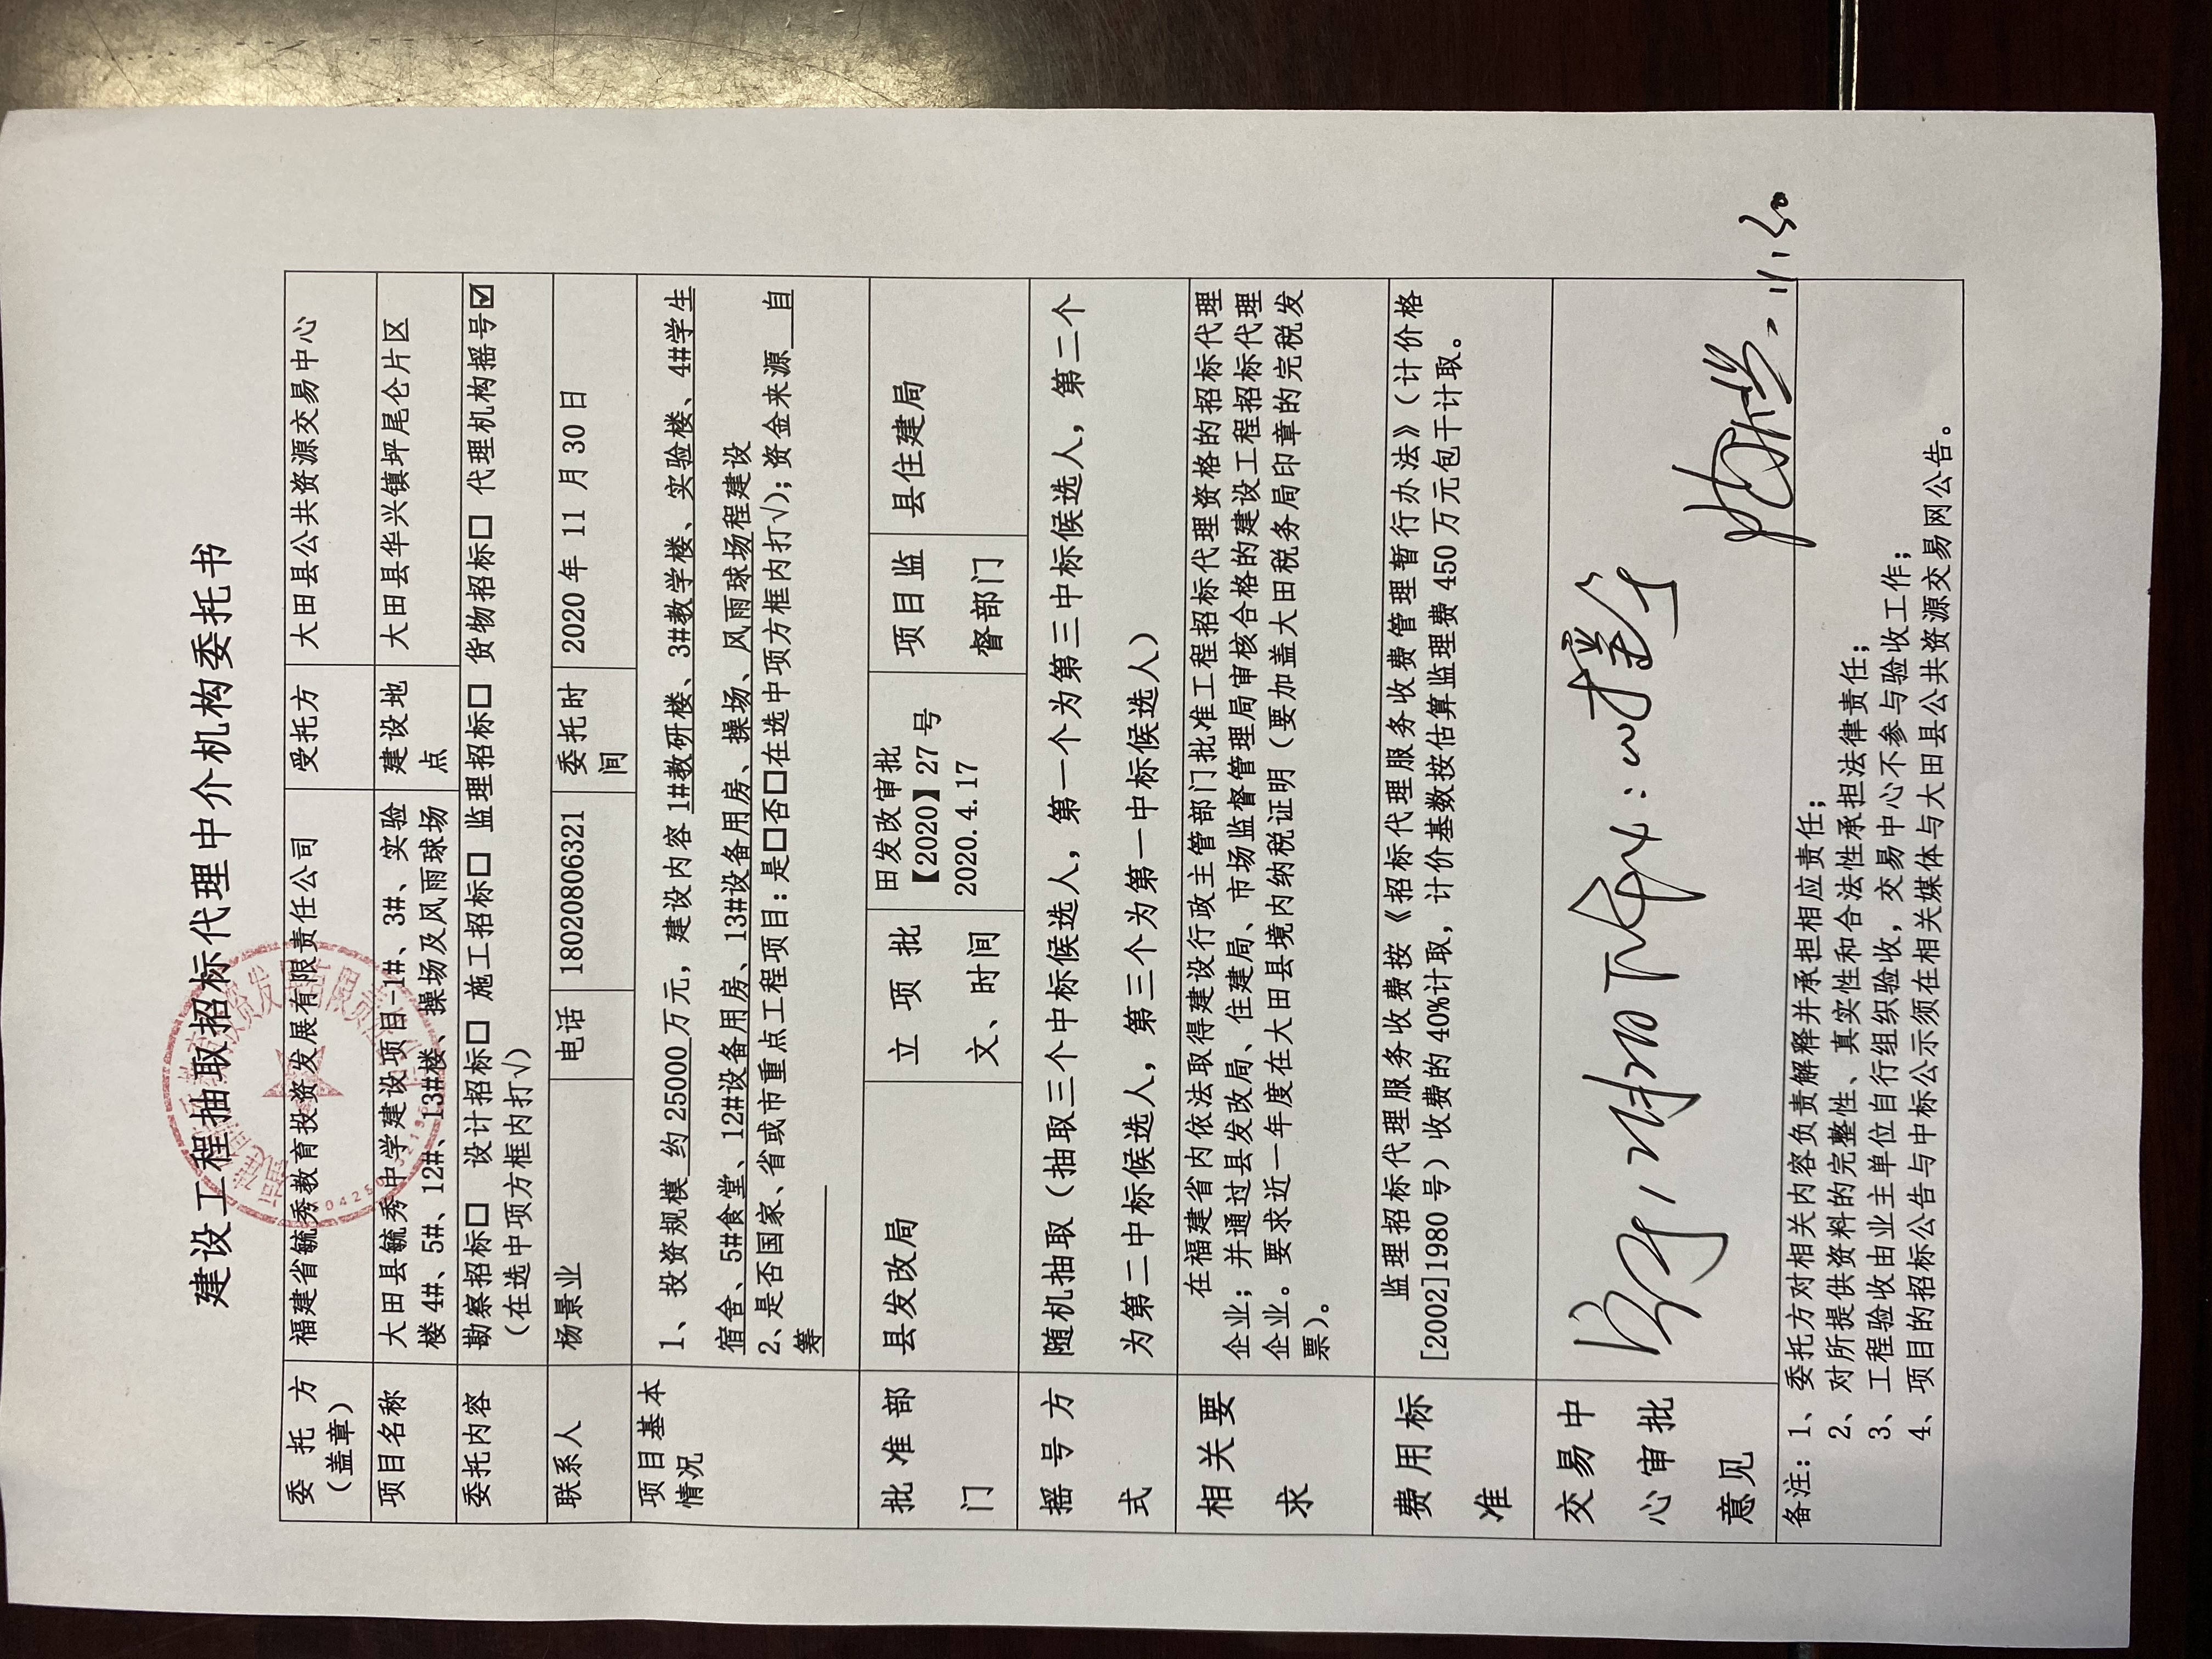 建设工程抽取招标代理中介机构委托书
委托方 福建省毓秀教育投资发展有限责任公司 受托方 大田县公共资源交易中心
（盖章）
项目名称 大田县毓秀中学建设项目-1#、3#、实验 建设地 大田县华兴镇坪尾仑片区
楼 4#、5#、12#、13#楼、操场及风雨球场 点
委托内容 勘察招标□ 设计招标□ 施工招标□ 监理招标□ 货物招标□ 代理机构摇号☑
（在选中项方框内打√）
联系人 杨景业 电话 18020806321 委托时 2020 年 11 月 30 日
间
项目基本 1、投资规模 约 25000 万元，建设内容 1#教研楼、3#教学楼、实验楼、4#学生
情况 宿舍、5#食堂、12#设备用房、13#设备用房、操场、风雨球场程建设
2、是否国家、省或市重点工程项目：是□否□在选中项方框内打√）；资金来源 自
筹
批准部 县发改局 立项批 田发改审批 项目监 县住建局
门 文、时间 【2020】27 号 督部门
2020.4.17
摇号方 随机抽取（抽取三个中标候选人，第一个为第三中标候选人，第二个
式 为第二中标候选人，第三个为第一中标候选人）
相关要 在福建省内依法取得建设行政主管部门批准工程招标代理资格的招标代理
求 企业；并通过县发改局、住建局、市场监督管理局审核合格的建设工程招标代理
企业。要求近一年度在大田县境内纳税证明（要加盖大田税务局印章的完税发
票）。
费用标 监理招标代理服务收费按《招标代理服务收费管理暂行办法》（计价格
准 [2002]1980 号）收费的 40%计取，计价基数按估算监理费 450 万元包干计取。
交易中
心审批
意见
11.30
备注：1、委托方对相关内容负责解释并承担相应责任；
2、对所提供资料的完整性、真实性和合法性承担法律责任；
3、工程验收由业主单位自行组织验收，交易中心不参与验收工作；
4、项目的招标公告与中标公示须在相关媒体与大田县公共资源交易网公告。